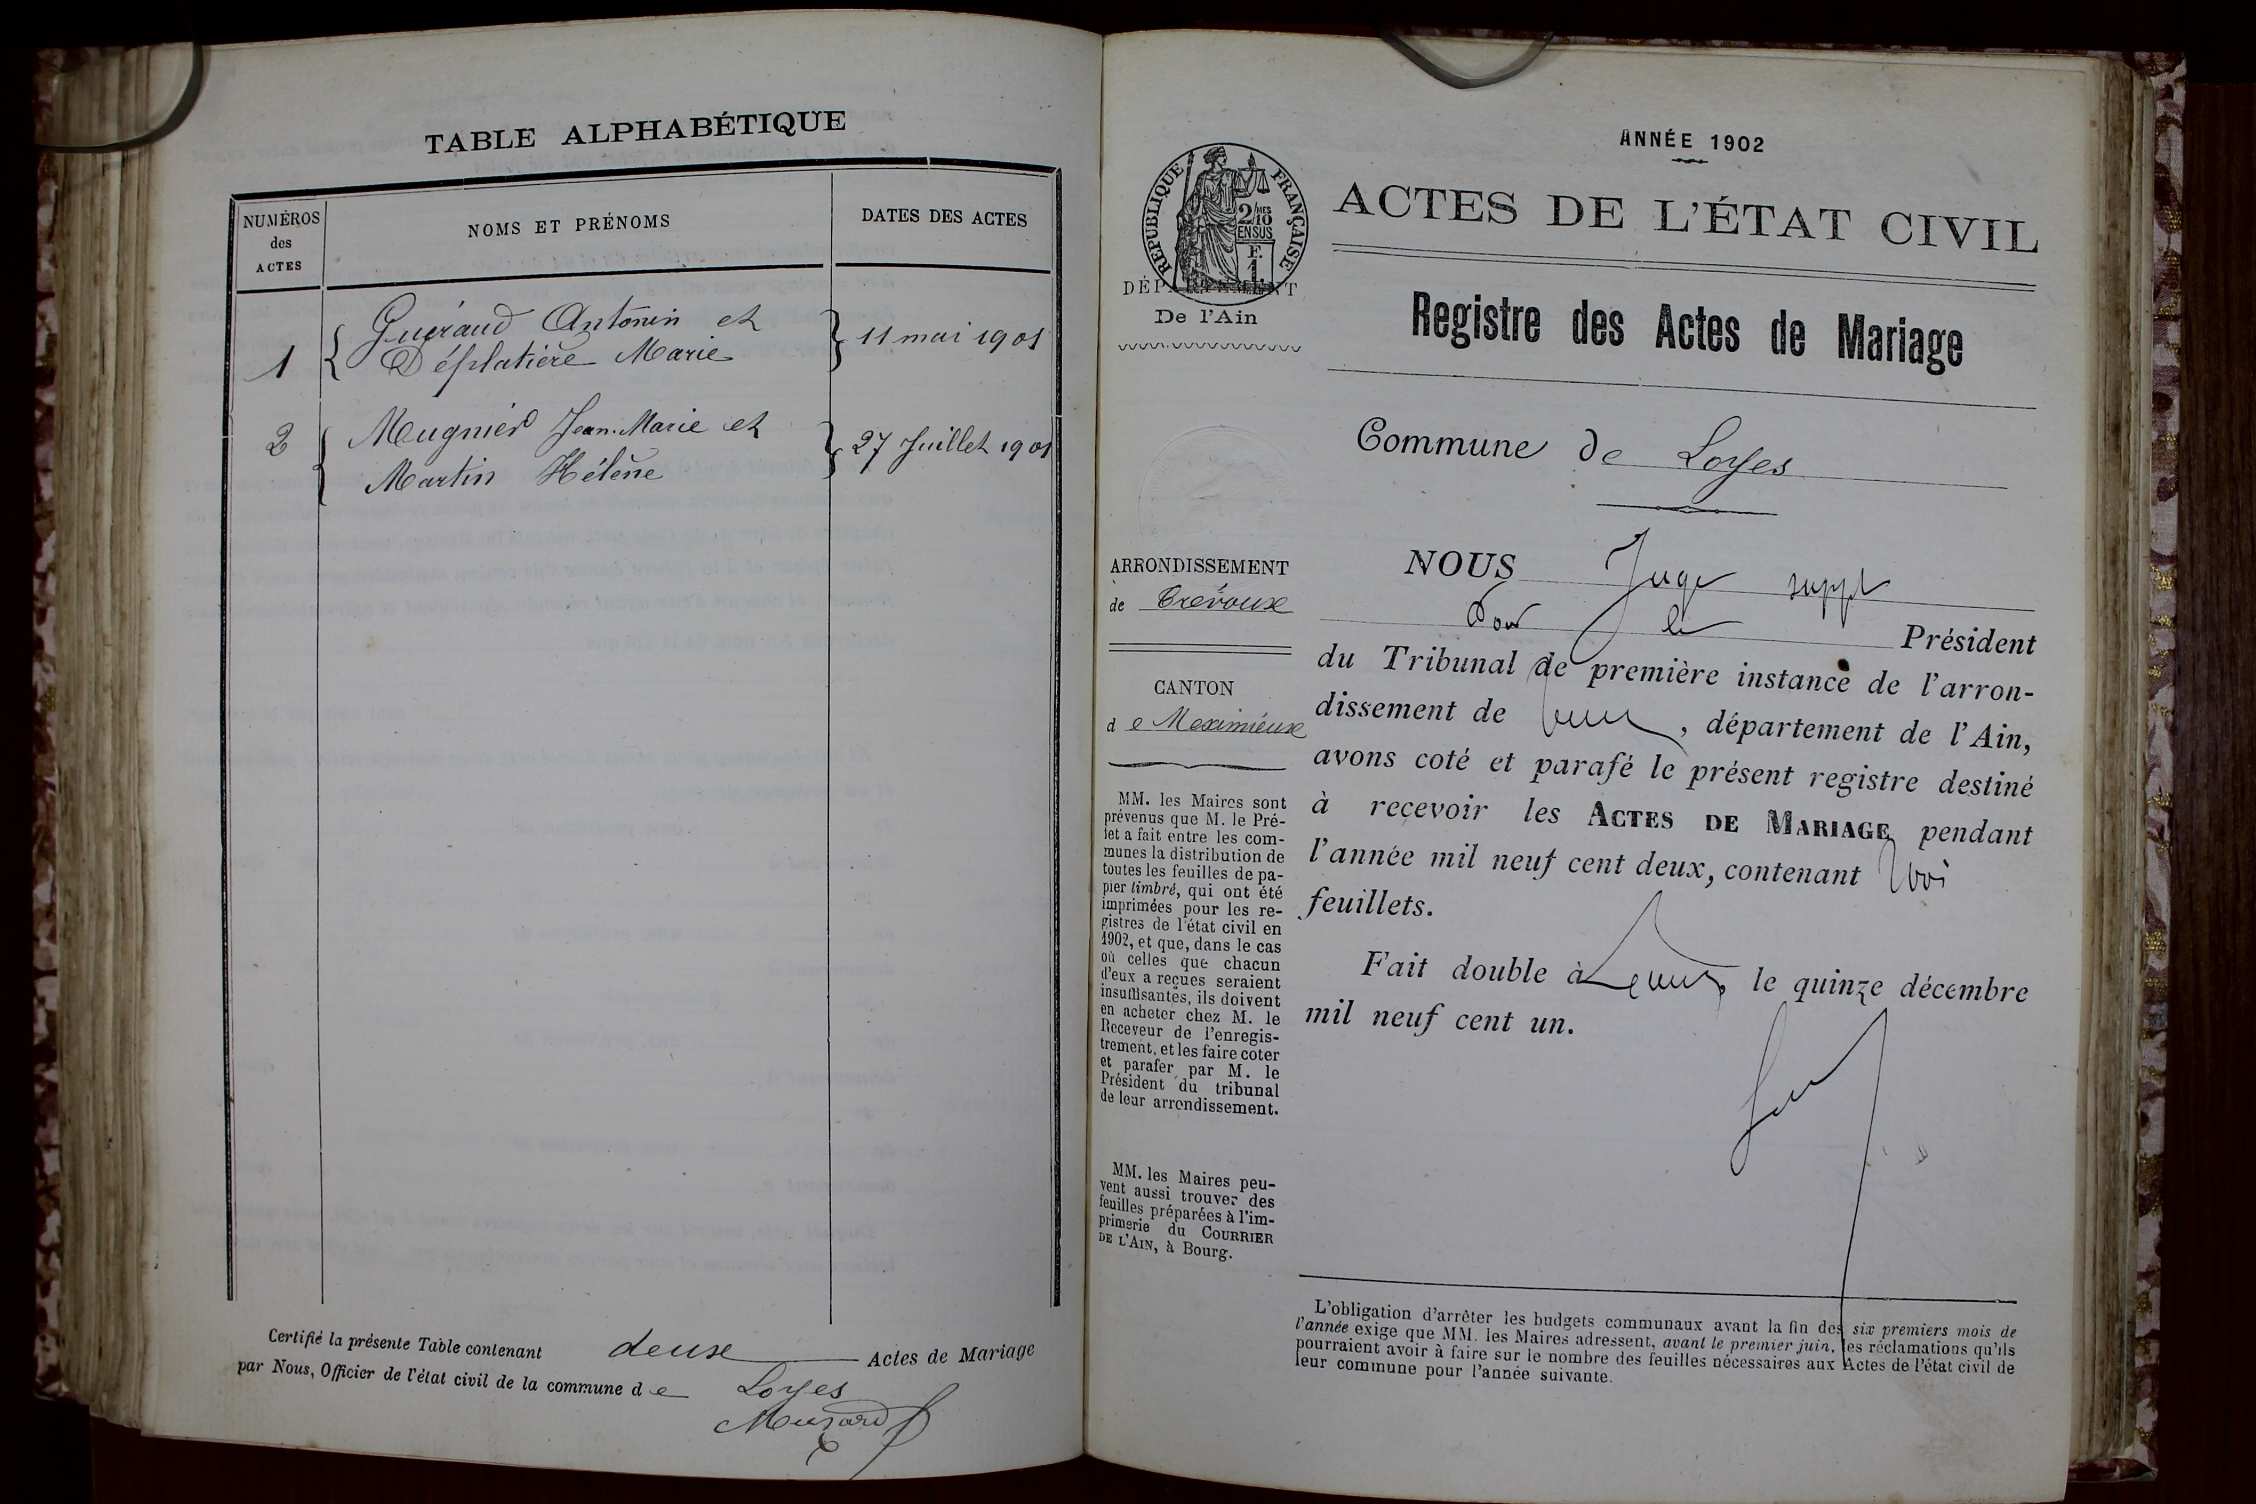 TABLE ALPHABÉTIQUE
NUMÉROS
des
ACTES
NOMS ET PRÉNOMS
DATES DES ACTES
1
Guéraud Antonin et
Désplatière Marie
11 mai 1901
2
Mugnier Jean-Marie et
Martin Hélène
27 Juillet 1901
Certifié la présente Table contenant deux Actes de Mariage
par Nous, Officier de l'état civil de la commune de Loyes
ANNÉE 1902
RÉPUBLIQUE FRANÇAISE
2/10 MES
EN SUS
F.
1
ACTES DE L'ÉTAT CIVIL
DÉPARTEMENT
De l'Ain
Registre des Actes de Mariage
Commune de Loyes
ARRONDISSEMENT
de Trévoux
CANTON
de Meximieux
MM. les Maires sont
prévenus que M. le Pré-
fet a fait entre les com-
munes la distribution de
toutes les feuilles de pa-
pier timbré, qui ont été
imprimées pour les re-
gistres de l'état civil en
1902, et que, dans le cas
où celles que chacun
d'eux a reçues seraient
insuffisantes, ils doivent
en acheter chez M. le
Receveur de l'enregis-
trement, et les faire coter
et parafer par M. le
Président du tribunal
de leur arrondissement.
MM. les Maires peu-
vent aussi trouver des
feuilles préparées à l'im-
primerie du COURRIER
DE L'AIN, à Bourg.
NOUS Juge suppt
Pour le Président
du Tribunal de première instance de l'arron-
dissement de , département de l'Ain,
avons coté et parafé le présent registre destiné
à recevoir les ACTES DE MARIAGE pendant
l'année mil neuf cent deux, contenant trois
feuillets.
Fait double à , le quinze décembre
mil neuf cent un.
L'obligation d'arrêter les budgets communaux avant la fin des six premiers mois de
l'année exige que MM. les Maires adressent, avant le premier juin, les réclamations qu'ils
pourraient avoir à faire sur le nombre des feuilles nécessaires aux Actes de l'état civil de
leur commune pour l'année suivante.